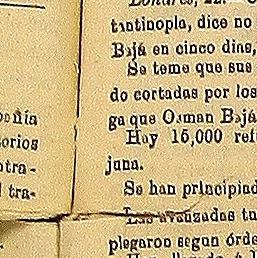 Londres, 22.
tantinopla, dice no
Bajá en cinco dias,
Se teme que sus
do cortadas por los
ga que Osman Bajá
Hay 15,000 ref
juna.
Se han principiad
Las avanzadas tu
plegaron segun órde
orios
ntra-
tra-